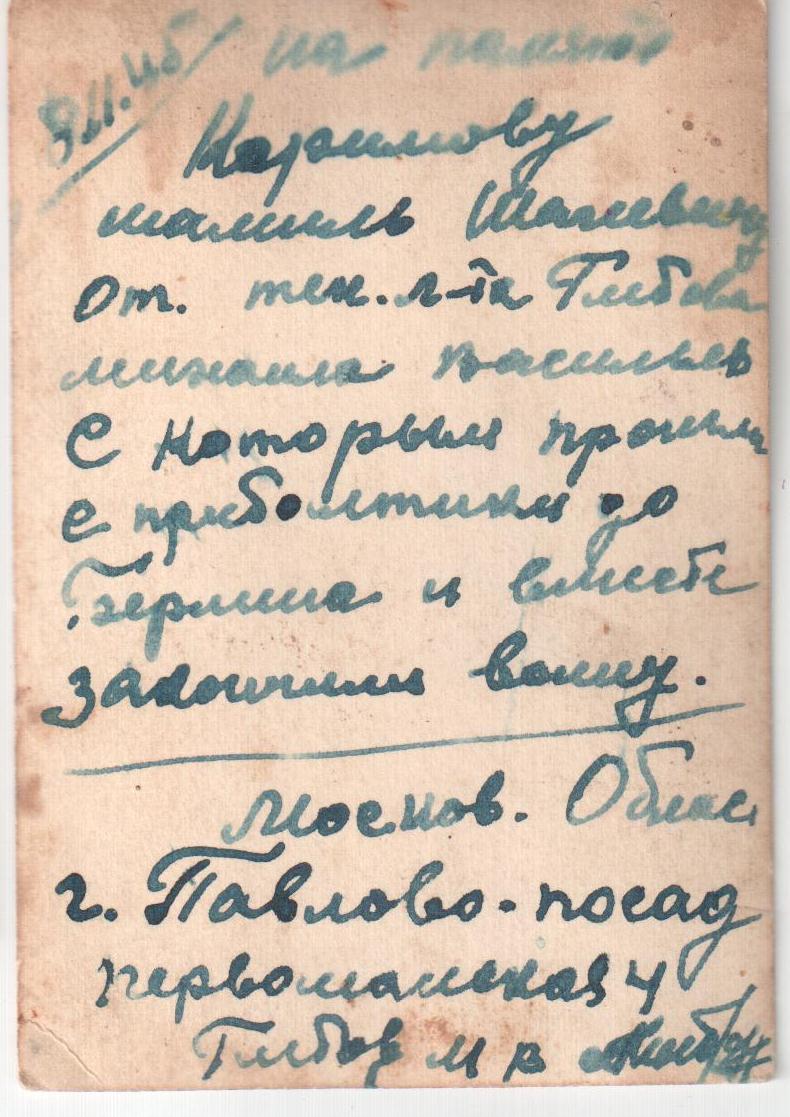 на память
Каримову
шамиль
От. тех. л-та Глебова
михаила васильев
С которым прошли
с прибалтики до
Берлина и вместе
закончили войну.
Москов. Облас
г. Павлово-посад
первомайская 4
Глебов М В